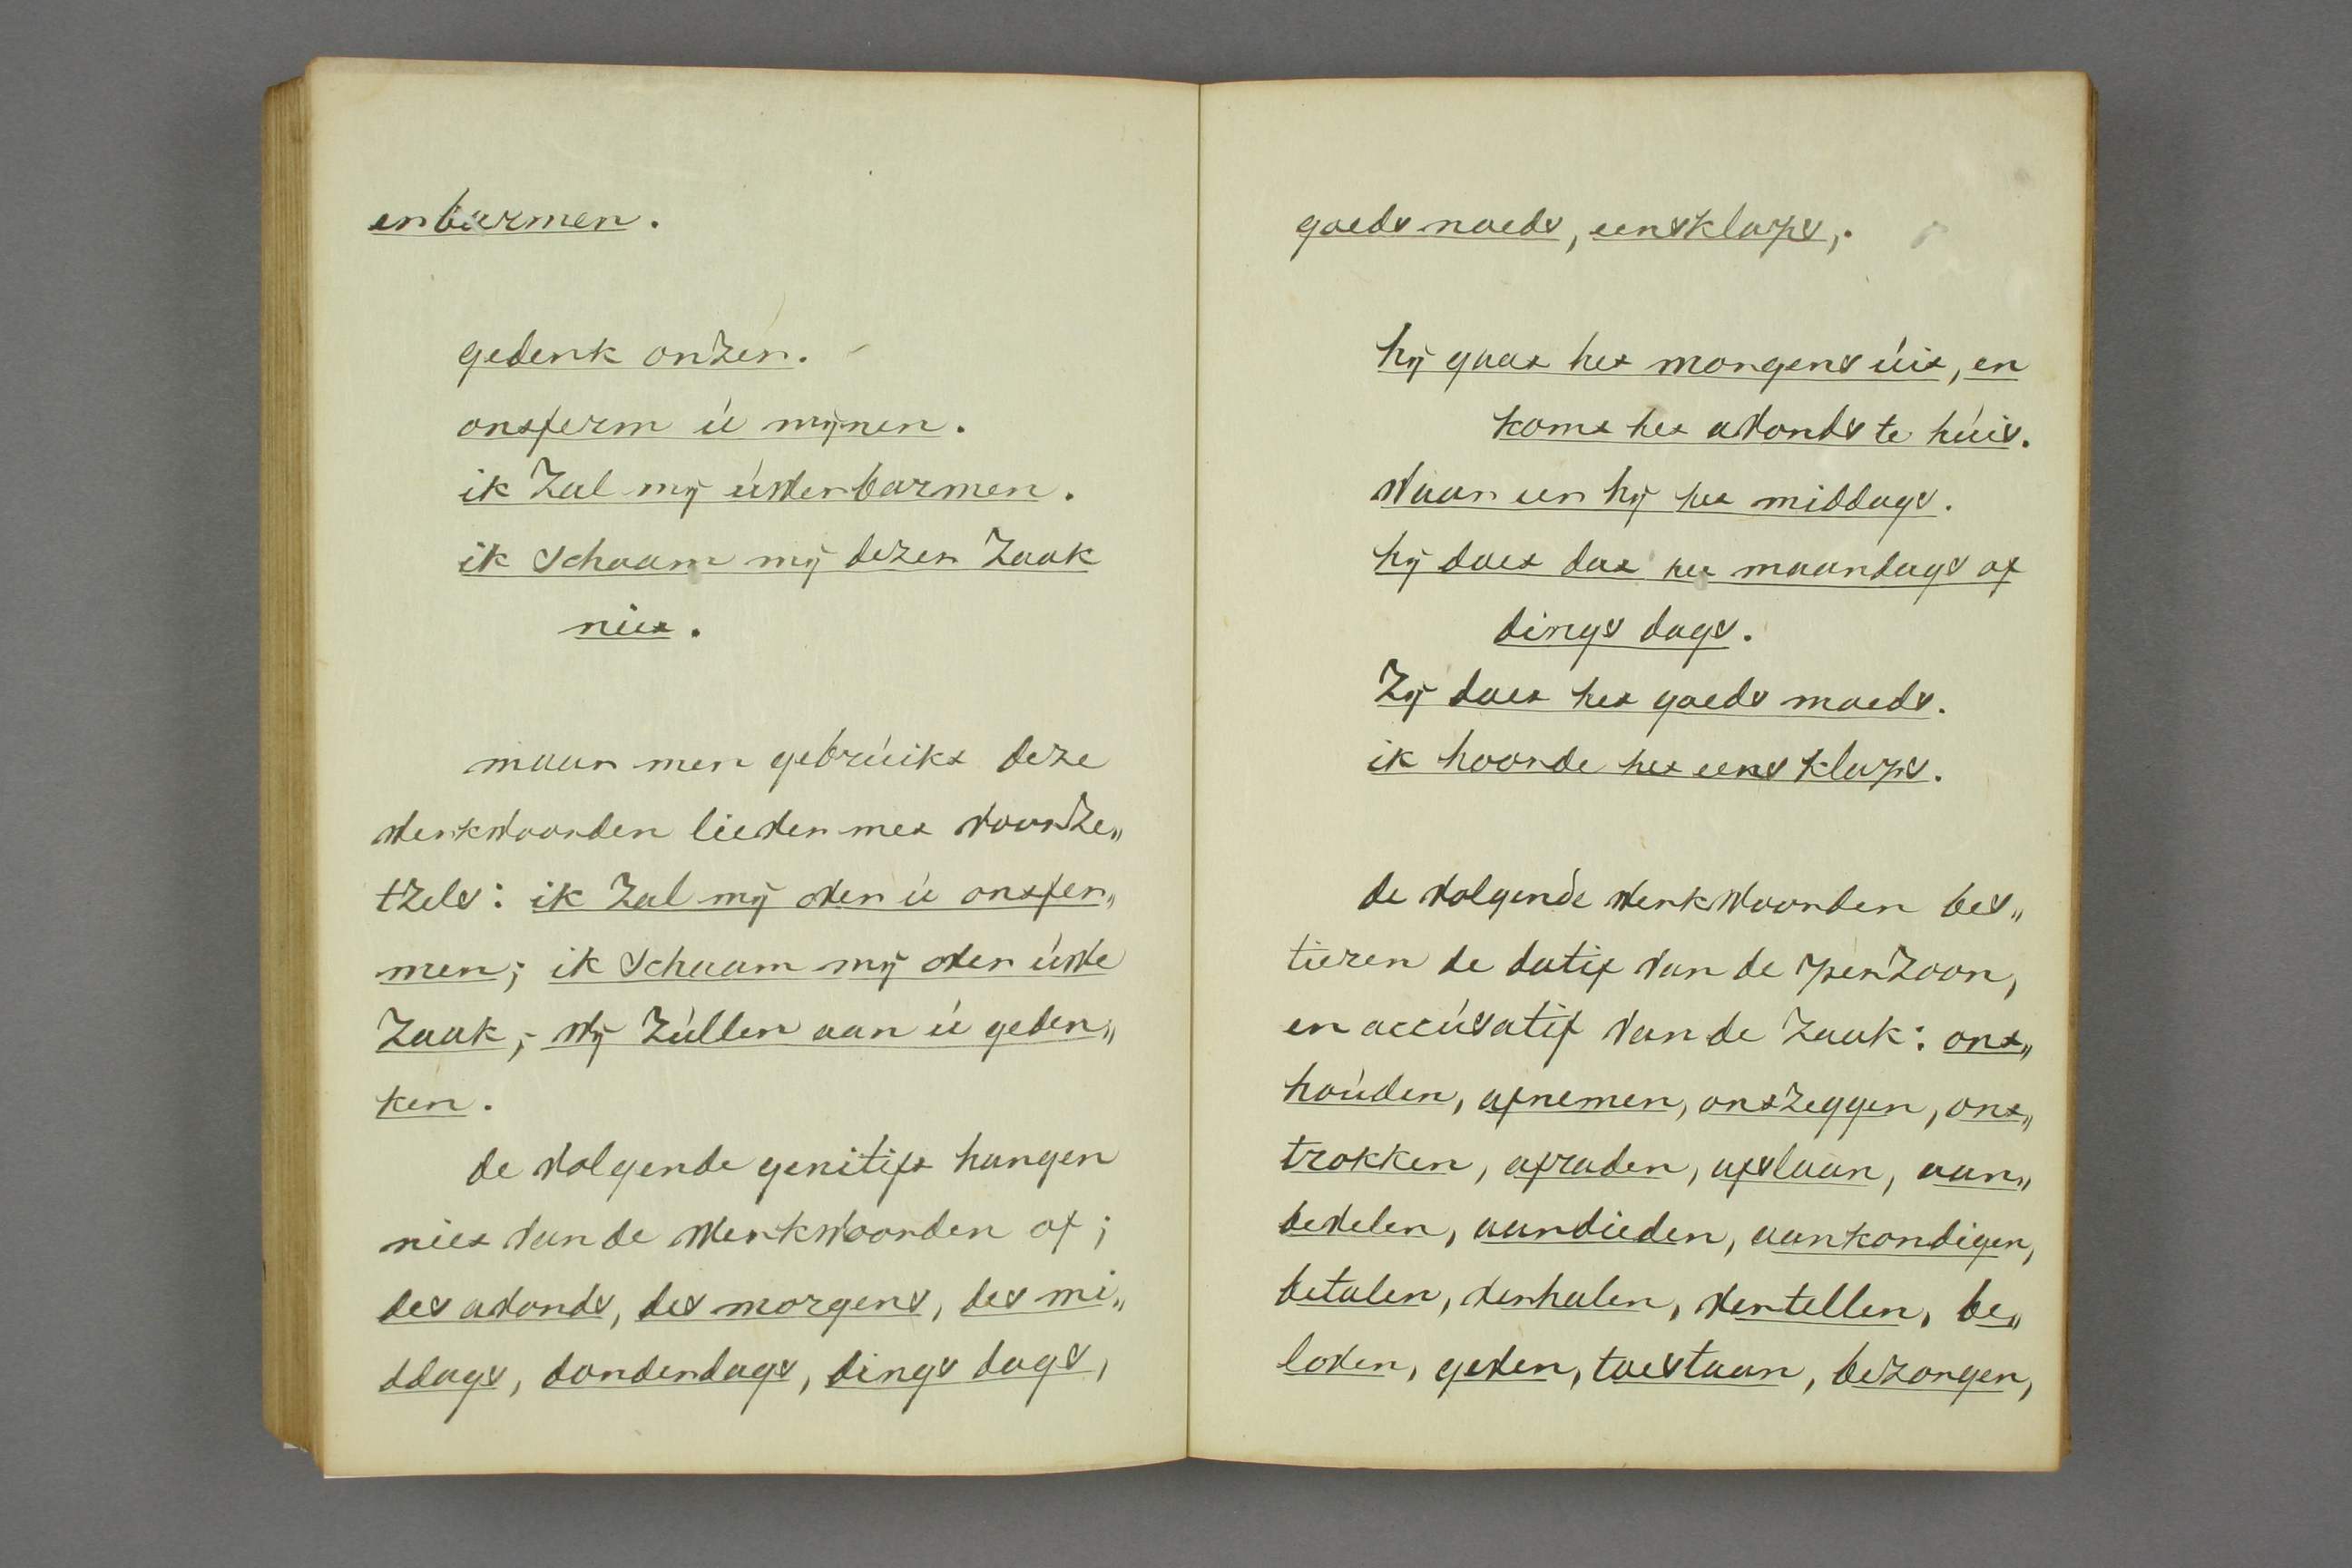 erbarmen.
gedenk onzer.
ontferm ú mijner.
ik Zal mij úwer barmen.
ik Schaam mij dezer Zaak
niet.
maar men gebrúikt deze
werkwoorden liever met voorze„
tzels: ik Zal mij over ú ontfer„
men; ik Schaam mij over úwe
Zaak; wij Zúllen aan ú geden„
ken.
de volgende genitift hangen
niet van de werkwoorden af;
des avonds, des morgens, des mi„
ddags, donderdags, dings dags,
goeds moeds, eensklaps,.
hij gaat het morgens úit, en
komt het avonds te húis.
waar eer hij het middags.
hij doet dat het maandags of
dings dags.
Zij doet het goeds moeds.
ik hoorde het eens klaps.
de volgende werkwoorden bes„
tieren de datif van de perZoon,
en accúsatif van de Zaak: ont„
hoúden, afnemen, ontzeggen, ont„
trokken, afraden, afslaan, aan„
bevelen, aandieden, aankondigen,
betalen, verhalen, vertellen, be„
loven, geven, toestaan, bezorgen,